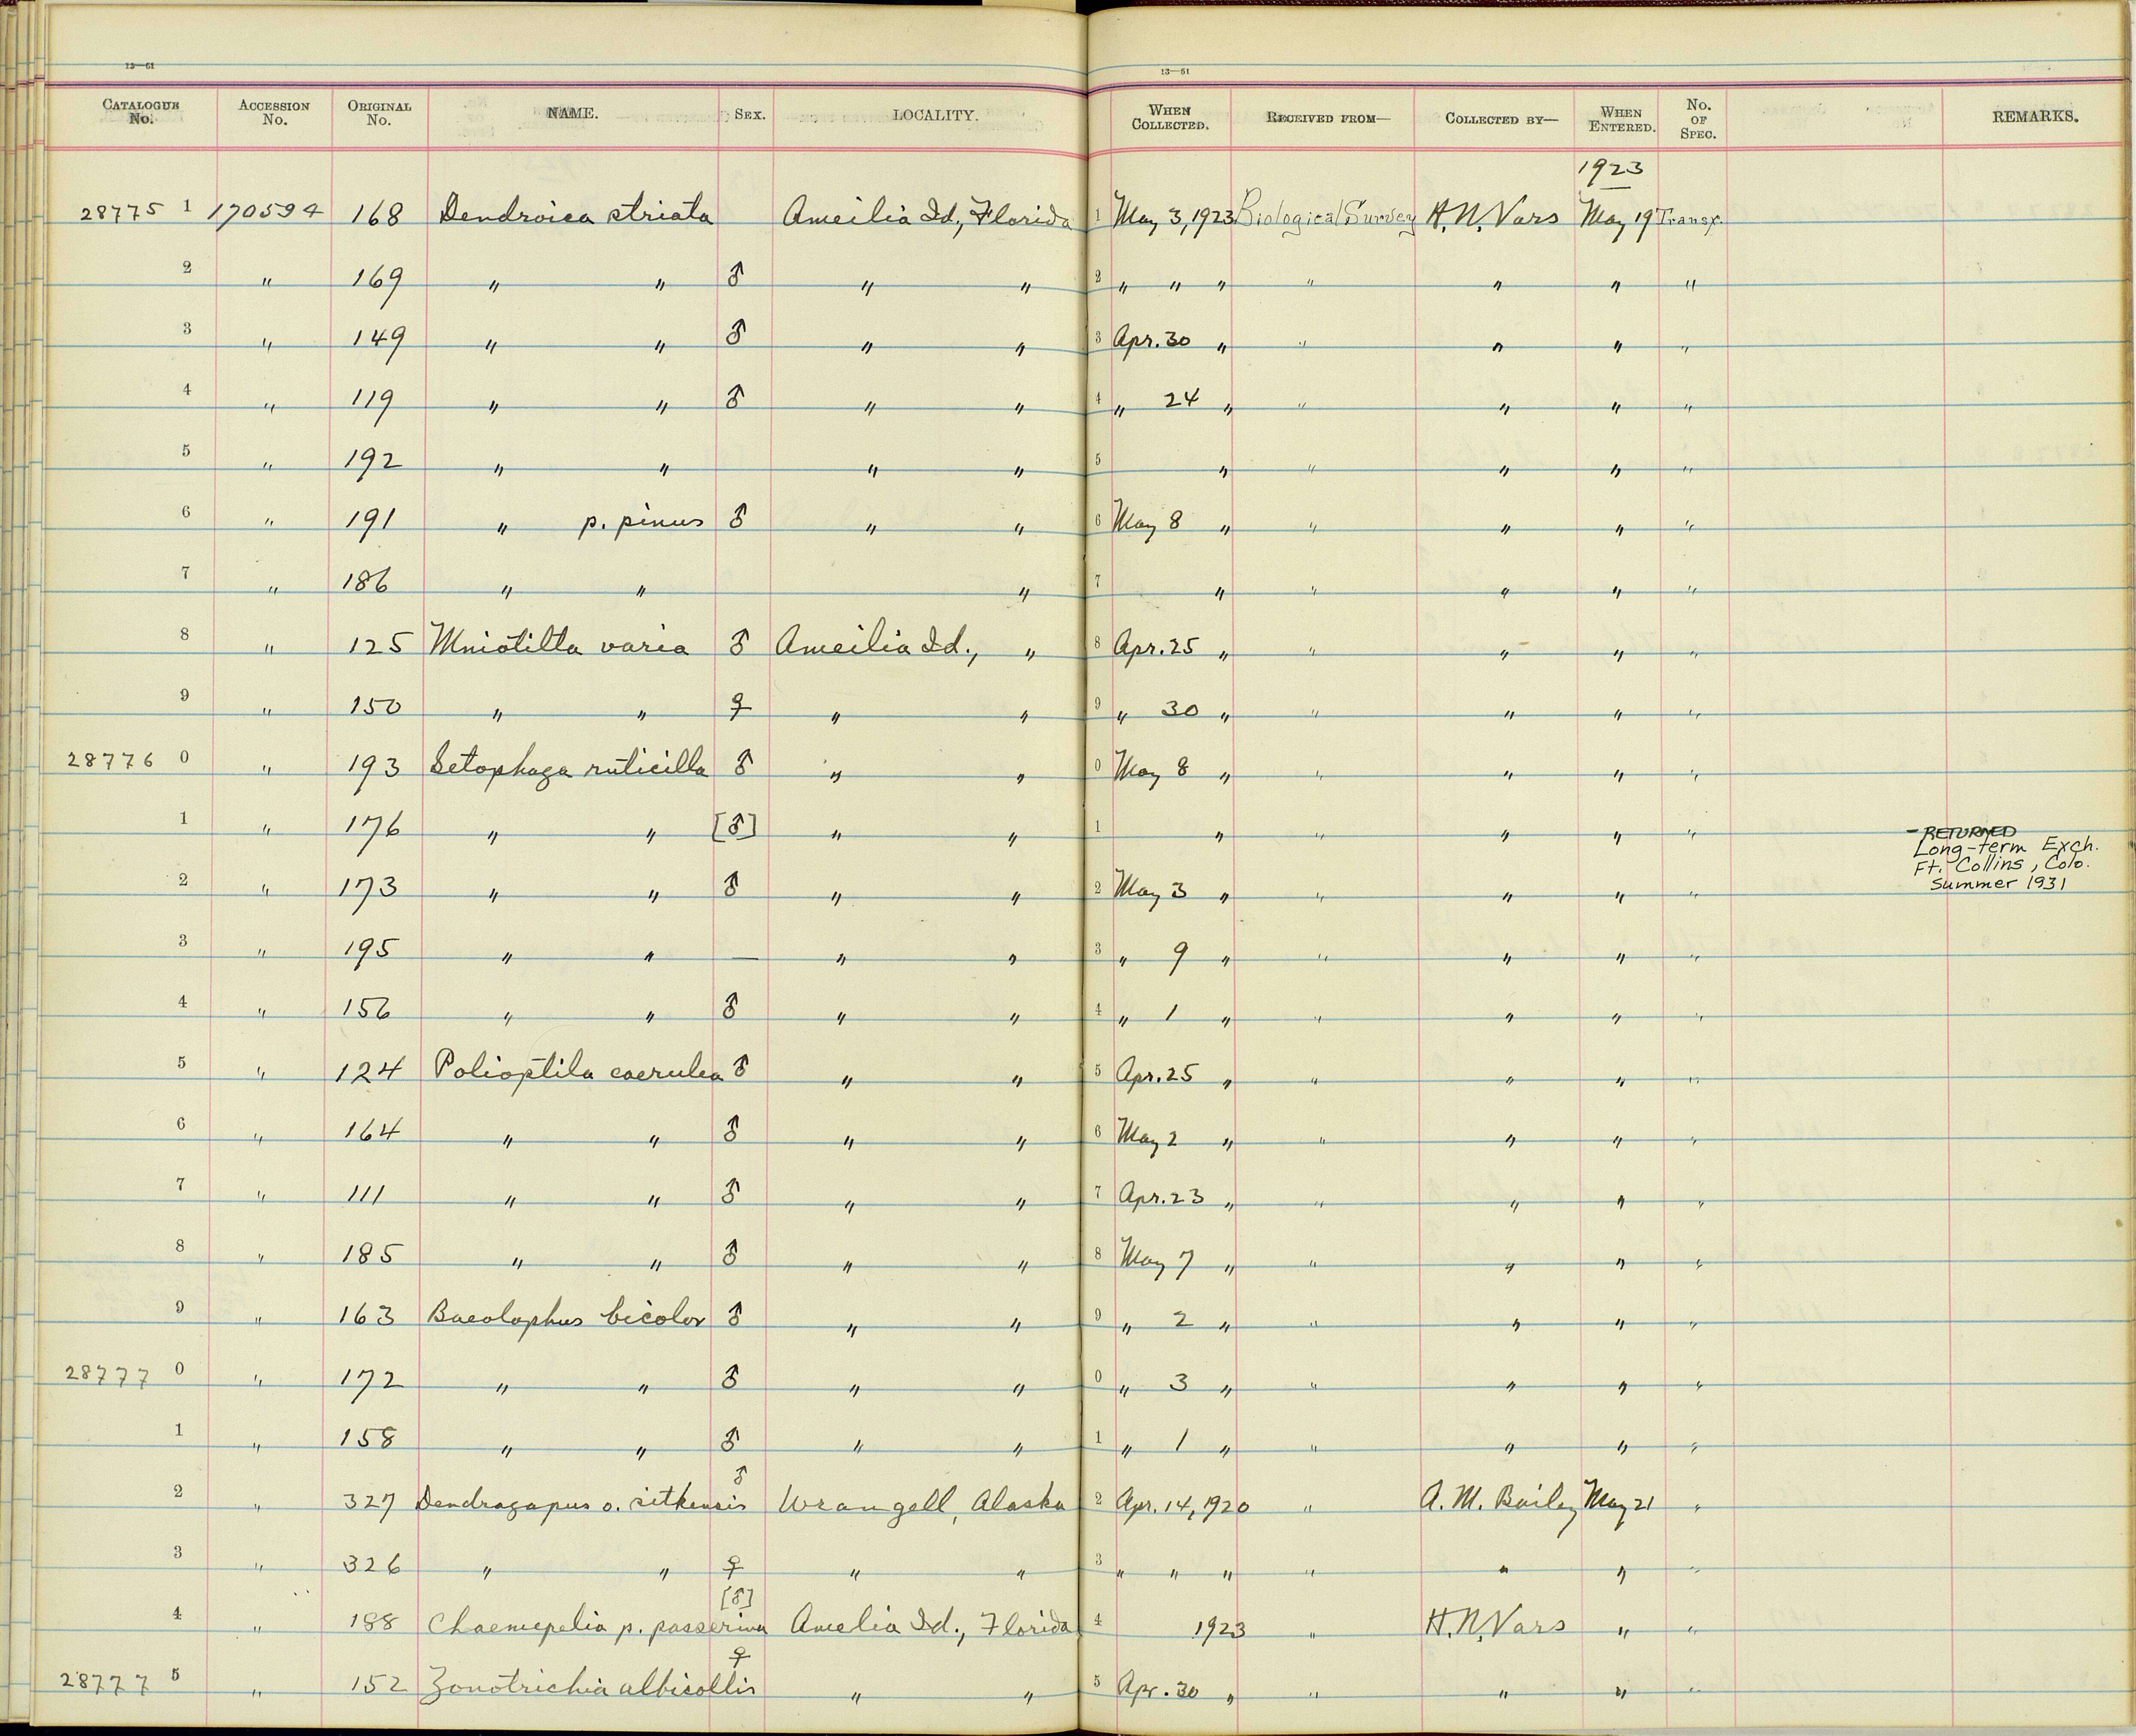 13—61
13—61
CATALOGUE No. ACCESSION No. ORIGINAL No. NAME. SEX. LOCALITY. WHEN COLLECTED. RECEIVED FROM— COLLECTED BY— WHEN ENTERED. No. OF SPEC. REMARKS.
1923
28775 1 170594 168 Dendroica striata Ameilia Id., Florida 1 May 3, 1923 Biological Survey H. N. Vars May 19 Transf.
2 " 169 " " ♂ " " 2 " " " " " " "
3 " 149 " " ♂ " " 3 Apr. 30 " " " " "
4 " 119 " " ♂ " " 4 " 24 " " " " "
5 " 192 " " " " 5 " " " " "
6 " 191 " p. pinus ♂ " " 6 May 8 " " " " "
7 " 186 " " " 7 " " " " "
8 " 125 Mniotilta varia ♂ Ameilia Id., " 8 Apr. 25 " " " " "
9 " 150 " " ♀ " " 9 " 30 " " " " "
28776 0 " 193 Setophaga ruticilla ♂ " " 0 May 8 " " " " "
1 " 176 " " [♂] " " 1 " " " " " – RETURNED
Long-term Exch.
Ft. Collins, Colo.
Summer 1931
2 " 173 " " ♂ " " 2 May 3 " " " " "
3 " 195 " " — " " 3 " 9 " " " " "
4 " 156 " " ♂ " " 4 " 1 " " " " "
5 " 124 Polioptila caerulea ♂ " " 5 Apr. 25 " " " " "
6 " 164 " " ♂ " " 6 May 2 " " " " "
7 " 111 " " ♂ " " 7 Apr. 23 " " " " "
8 " 185 " " ♂ " " 8 May 7 " " " " "
9 " 163 Baeolophus bicolor ♂ " " 9 " 2 " " " " "
28777 0 " 172 " " ♂ " " 0 " 3 " " " " "
1 " 158 " " ♂ " " 1 " 1 " " " " "
2 " 327 Dendragapus o. sitkensis ♂ Wrangell, Alaska 2 Apr. 14, 1920 " A. M. Bailey May 21 "
3 " 326 " " ♀ " " 3 " " " " " " "
4 " 188 Chaemepelia p. passerina [♂] Amelia Id., Florida 4 1923 " H. N. Vars " "
28777 5 " 152 Zonotrichia albicollis ♀ " " 5 Apr. 30 " " " " "